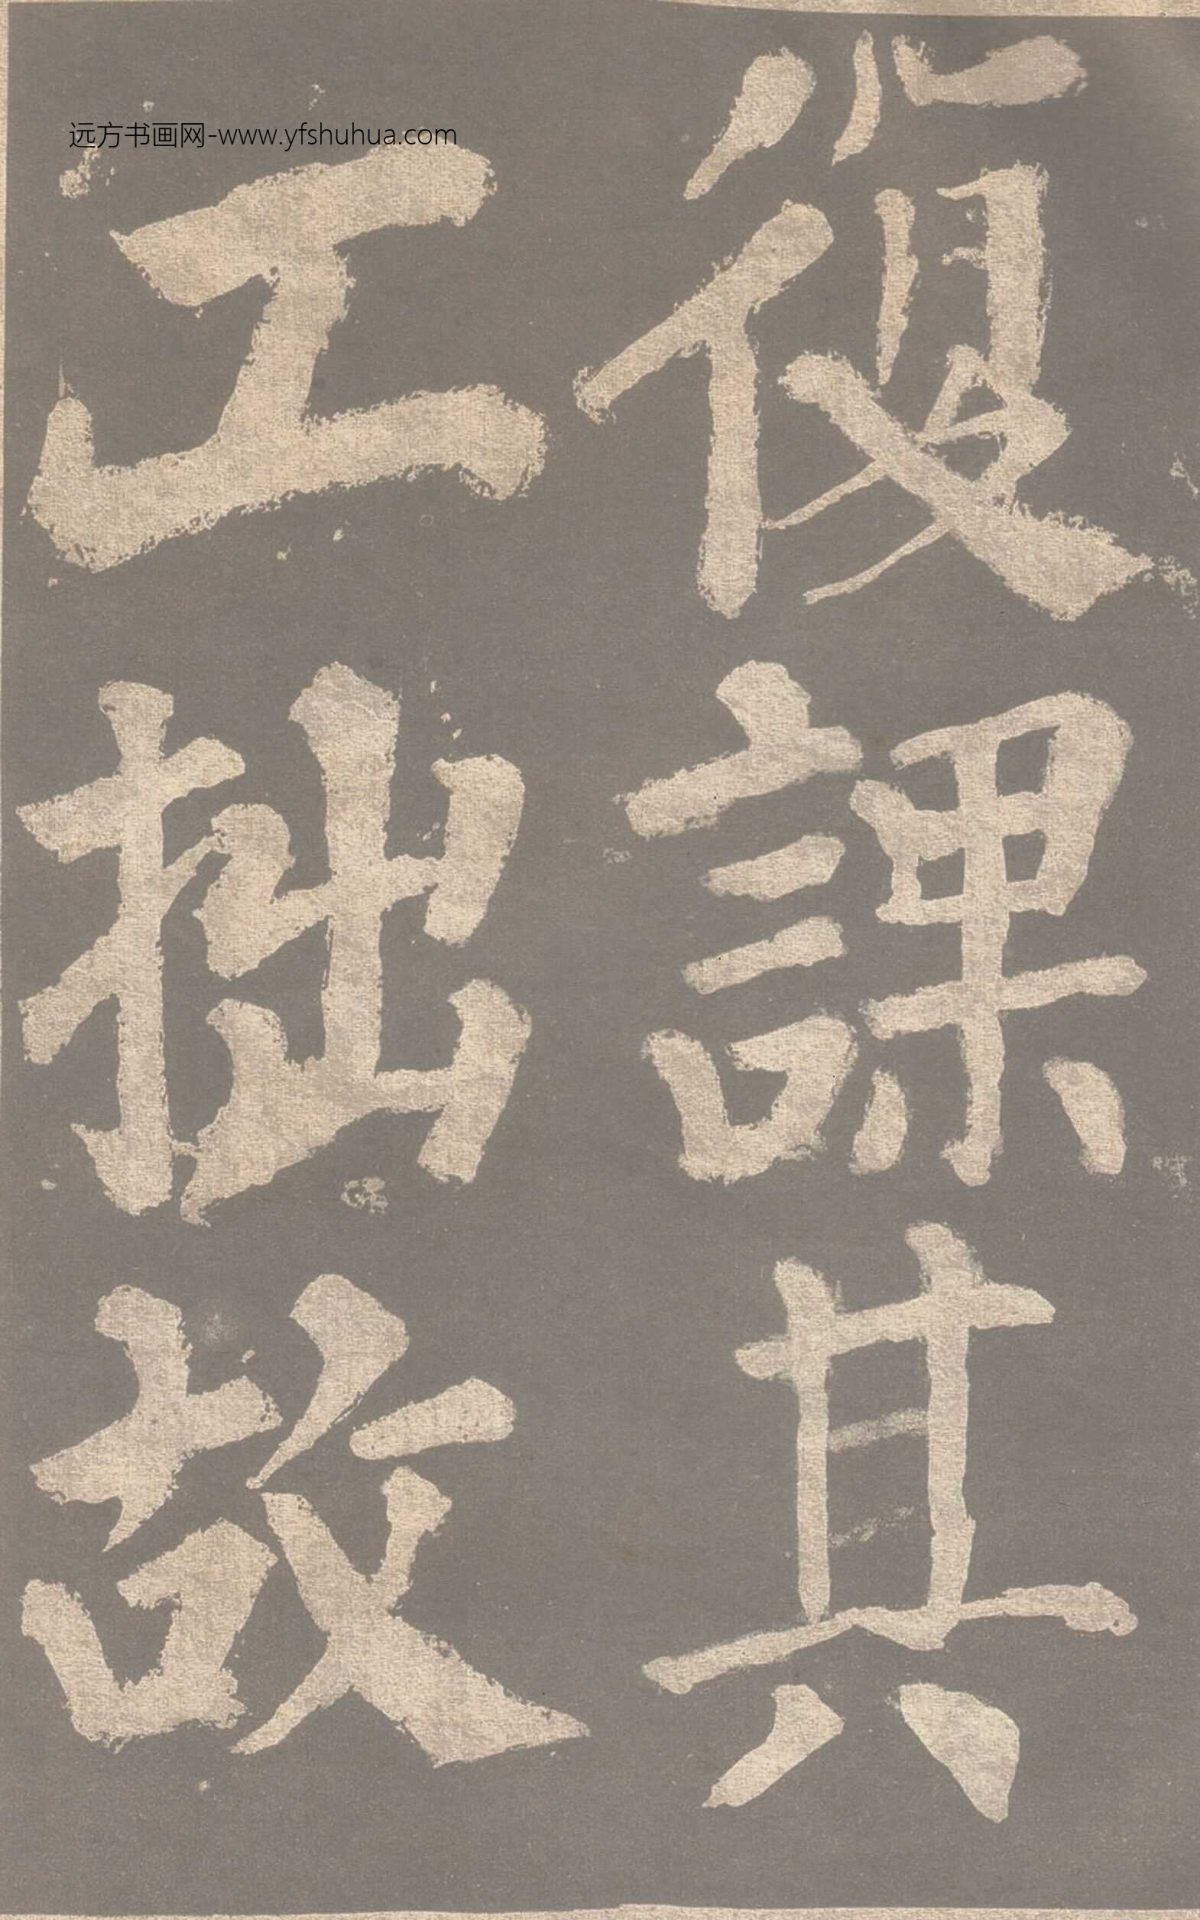 远方书画网-www.yfshuhua.com
復課其
工拙故